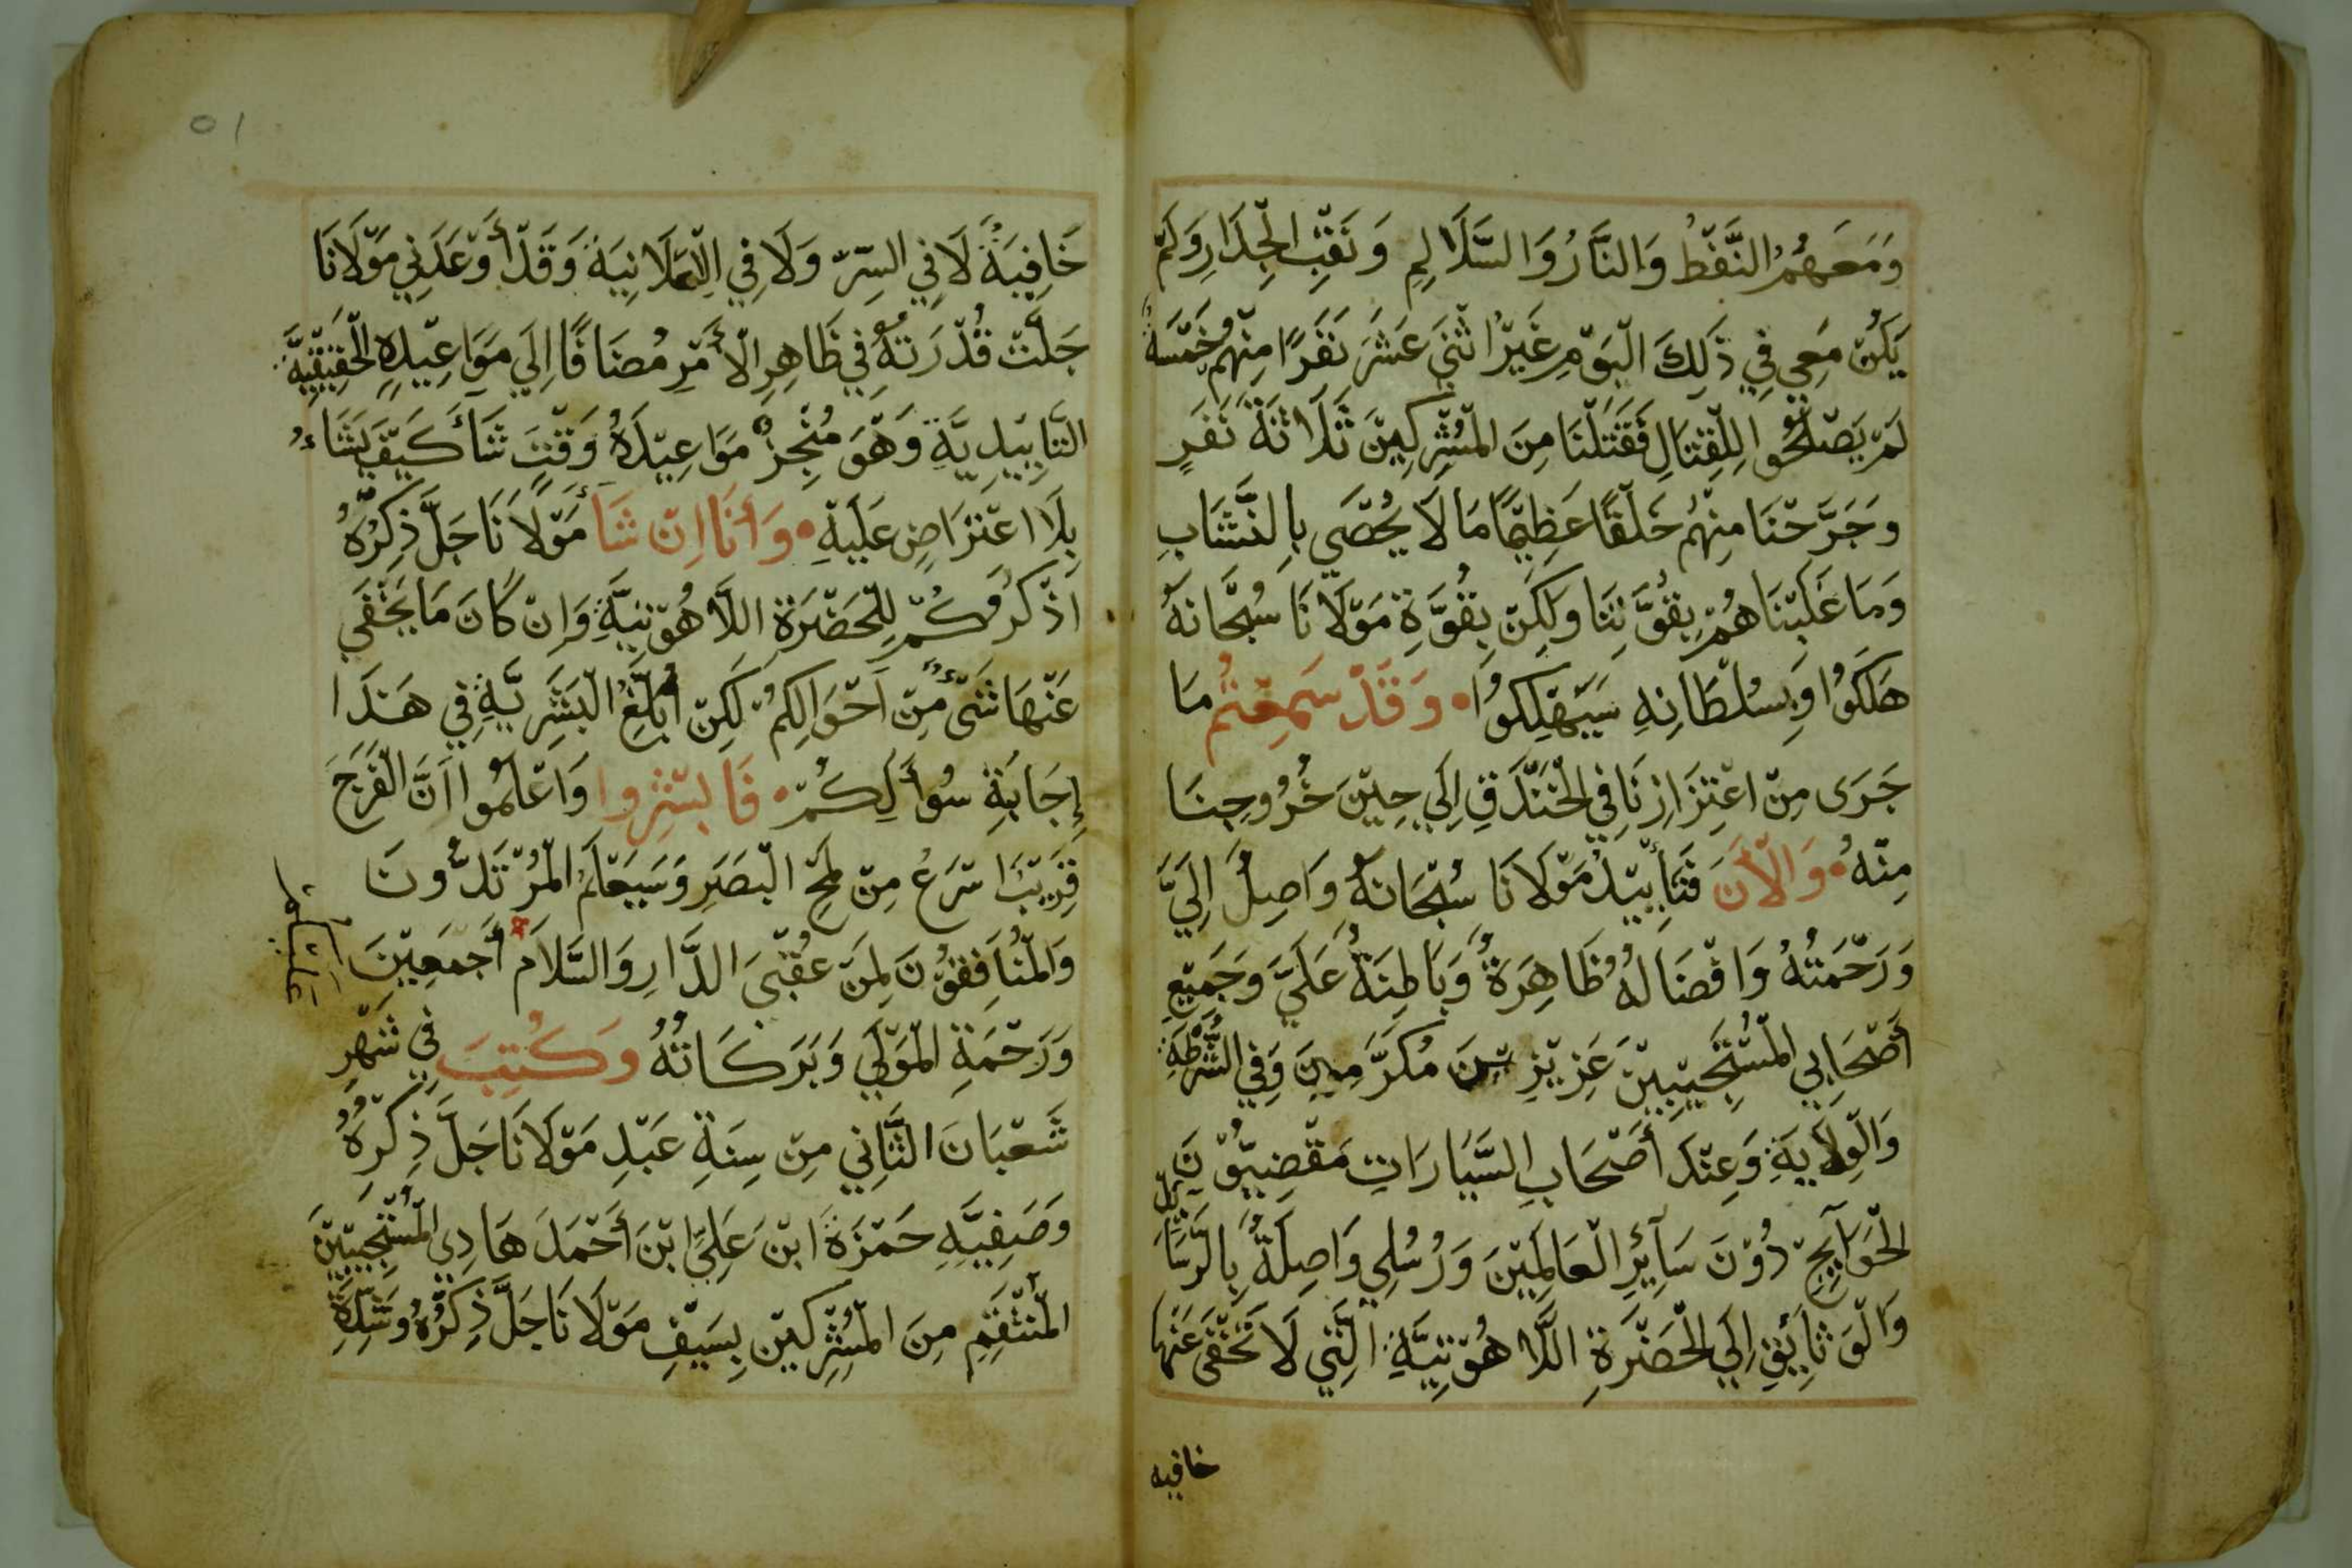 وَمَعَهُمُ النَّفْطُ وَالنَّارُ وَالسَّلَالِمِ وَنَقْبِ الْجِدَارِ وَلَمْ
يَكُنْ مَعِي فِي ذَلِكَ الْيَوْمِ غَيْرُ اثْنَيْ عَشَرَ نَفَرًا مِنْهُمْ خَمْسَةٌ
لَمْ يَصْلَحُوا لِلْقِتَالِ فَقَتَلْنَا مِنَ الْمُشْرِكِينَ ثَلَاثَةَ نَفَرٍ
وَجَرَّحْنَا مِنْهُم خَلْقًا عَظِيمًا مَا لَا يُحْصَى بِالنَّشَّابِ
وَمَا غَلَبْنَاهُمْ بِقُوَّتِنَا وَلَكِنْ بِقُوَّةِ مَوْلَانَا سُبْحَانَهُ
هَلَكُوا وَبِسُلْطَانِهِ سَيَهْلِكُوا وَقَدْ سَمِعْتُمْ مَا
جَرَى مِنْ اعْتِزَازِنَا فِي الْخَنْدَقِ إِلَي حِيْنَ خُرُوجِنَا
مِنْهُ وَالْأَنَ فَتَأْيِيْدُ مَوْلَانَا سُبْحَانَهُ وَاصِلٌ إِلَيَّ
وَرَحْمَتُهُ وَافْضَالُهُ ظَاهِرَةٌ وَبَاطِنَةٌ عَلَيَّ وَجَمِيْعِ
أَصْحَابِي الْمُسْتَجِيْبِيْنَ عَزِيْزِيْنَ مُكَرَّمِيْنَ وَفِي الشُّرْطَةِ
وَالْوِلَايَةِ وَعِنْدَ أَصْحَابِ السَّيَارَاتِ مَقْضِيُّوْنَ
الْحَوَآئِجِ دُوْنَ سَآئِرِ الْعَالَمِيْنَ وَرُسُلِي وَاصِلَةٌ بِالرَّسَائِلِ
وَالْوَثَائِقِ إِلَي الْحَضْرَةِ اللَّاهُوْتِيَّةِ الَّتِي لَا تَخْفَى عَنْهَا
خافيه
٥١
خَافِيَةٌ لَا فِي السِّرِّ وَلَا فِي الْعَلَانِيَةِ وَقَدْ أَوْعَدَنِي مَوْلَانَا
جَلَّتْ قُدْرَتُهُ فِي ظَاهِرِ الْأَمْرِ مُضَافًا إِلَي مَوَاعِيْدِهِ الْحَقِيْقِيَّةِ
التَّأْيِيْدِيَّةِ وَهُوَ مُنْجِزٌ مَوَاعِيْدَهُ وَقْتَ شَأَ كَيْفَ يَشَاءُ
بِلَا اعْتَرَاضٍ عَلَيْهِ وَأَنَا إِنْ شَأَ مَوْلَانَا جَلَّ ذِكْرُهُ
اَذْكُرُكُمْ لِلْحَضْرَةِ اللَّاهُوْتِيَّةِ وَإِنْ كَانَ مَا يَخْفَي
عَنْهَا شَىْءٌ مِنْ اَحْوَالِكُمْ لَكِنْ أَبْلَغُ الْبَشَرِيَّةِ فِي هَذَا
إِجَابَةِ سُوأَلِكُمْ فَابْشِرُوا وَاعْلَمُوا اَنَّ الْفَرَجَ
قَرِيْبٌ اسْرَعُ مِنْ لَمْحِ الْبَصَرِ وَسَيَعْلَمُ الْمُرْتَدُّونَ
وَالْمُنَافِقُوْنَ لِمَنْ عُقْبَى الدَّارِ وَالسَّلَامُ أَجْمَعِيْنَ
عَلَيْكُمْ
وَرَحْمَةِ الْمَوْلَي وَبَرَكَاتُهُ وَكُتِبَ فِي شَهْرِ
شَعْبَانَ الثَّانِي مِنْ سِنَةِ عَبْدِ مَوْلَانَا جَلَّ ذِكْرُهُ
وَصَفِيِّهِ حَمْزَةَ ابْنَ عَلِيِّ ابْنَ أَحْمَدَ هَادِي الْمُسْتَجِيْبِيْنَ
الْمُنْتَقِمِ مِنَ الْمُشْرِكِيْنَ بِسَيْفِ مَوْلَانَا جَلَّ ذِكْرُهُ وَشِدَّةِ